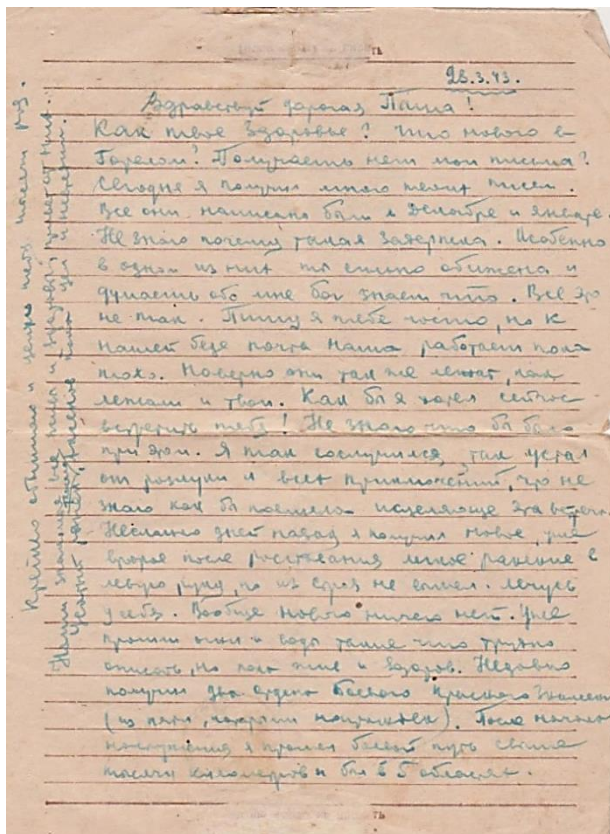 23.3.43.
Здравствуй дорогая Пиша!
Как твое здоровье? Что нового в
Горелом? Получаешь нет мои письма?
Сегодня я получил много твоих писем.
Все они написано были в Декабре и январе
Не знаю почему такая задержка. Особенно
в одном из них ты сильно обижена и
думаешь обо мне бог знает что. Все это
не так. Пишу я тебе часто, но к
нашей беде почта наша работает пока
плохо. Наверно они так же лежат, как
лежали и твои. Как бы я хотел сейчас
встретить тебя! Не знаю что бы было
при этом. Я так соскучился, так устал
от разлуки и всех приключений, что не
знаю как бы исцеляюще эта встреча.
Несколько дней назад я получил новое, уже
второе после расставания легкое ранение в
левую руку, но из строя не вышел. Лечусь
у себя. Вообще нового ничего нет. Уже
прошли огни и воды такие что трудно
описать, но пока жив и здоров. Недавно
получил два ордена Боевого Красного Знамени
(из пяти, которыми ). После начала
наступления я прошел боевой путь свыше
тысячи километров и был в 5 областях.
Крепко обнимаю и целую тебя тысячи раз.
Наши знакомые все живы и здоровы, привет от них.